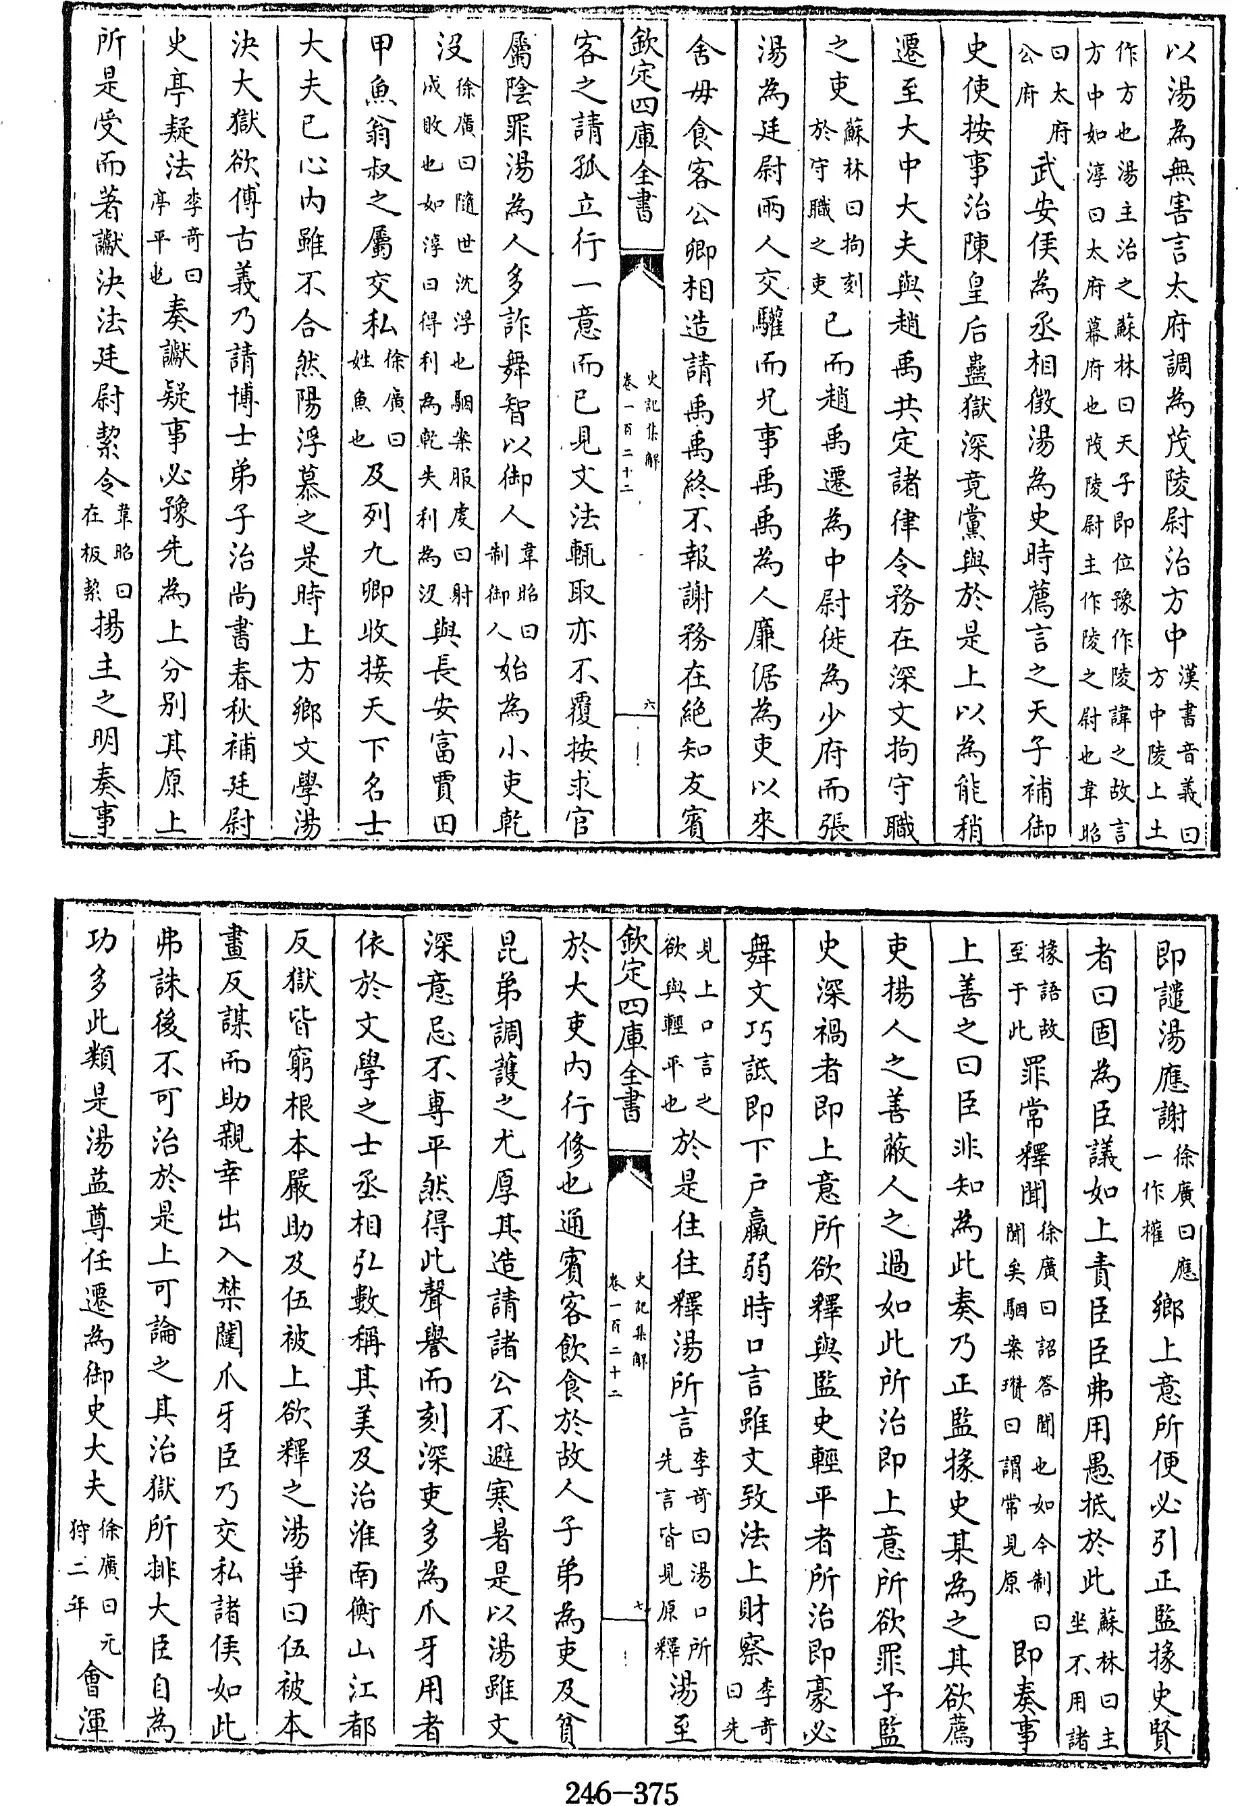 以湯為無害言太府調為茂陵尉治方中漢書音義曰方中陵上土
作方也湯主治之蘇林曰天子即位豫作陵諱之故言方中如淳曰太府幕府也茂陵尉主作陵之尉也韋昭
曰太府公府武安侯為丞相徵湯為史時薦言之天子補御
史使按事治陳皇后蠱獄深竟黨與於是上以為能稍
遷至大中大夫與趙禹共定諸律令務在深文拘守職
之吏蘇林曰拘刻於守職之吏已而趙禹遷為中尉徙為少府而張
湯為廷尉兩人交驩而兄事禹禹為人廉倨為吏以來
舍毋食客公卿相造請禹禹終不報謝務在絕知友賓
欽定四庫全書
史記集解
卷一百二十二
六
客之請孤立行一意而已見文法輒取亦不覆按求官
屬陰罪湯為人多詐舞智以御人韋昭曰制御人始為小吏乾
沒徐廣曰隨世沈浮也駰案服虔曰射成敗也如淳曰得利為乾失利為沒與長安富賈田
甲魚翁叔之屬交私徐廣曰姓魚也及列九卿收接天下名士
大夫已心內雖不合然陽浮慕之是時上方鄉文學湯
決大獄欲傅古義乃請博士弟子治尚書春秋補廷尉
史亭疑法李奇曰亭平也奏讞疑事必豫先為上分別其原上
所是受而著讞決法廷尉絜令韋昭曰在板絜揚主之明奏事
即譴湯應謝徐廣曰應一作權鄉上意所便必引正監掾史賢
者曰固為臣議如上責臣臣弗用愚抵於此蘇林曰主坐不用諸
掾語故至于此罪常釋聞徐廣曰詔答聞也如今制曰聞矣駰案瓚曰謂常見原即奏事
上善之曰臣非知為此奏乃正監掾史某為之其欲薦
吏揚人之善蔽人之過如此所治即上意所欲罪予監
史深禍者即上意所欲釋與監史輕平者所治即豪必
舞文巧詆即下戶羸弱時口言雖文致法上財察李奇曰先
見上口言之欲與輕平也於是往往釋湯所言李奇曰湯口所先言皆見原釋湯至
欽定四庫全書
史記集解
卷一百二十二
七
於大吏內行修也通賓客飲食於故人子弟為吏及貧
昆弟調護之尤厚其造請諸公不避寒暑是以湯雖文
深意忌不專平然得此聲譽而刻深吏多為爪牙用者
依於文學之士丞相弘數稱其美及治淮南衡山江都
反獄皆窮根本嚴助及伍被上欲釋之湯爭曰伍被本
畫反謀而助親幸出入禁闥爪牙臣乃交私諸侯如此
弗誅後不可治於是上可論之其治獄所排大臣自為
功多此類是湯益尊任遷為御史大夫徐廣曰元狩二年會渾
246-375